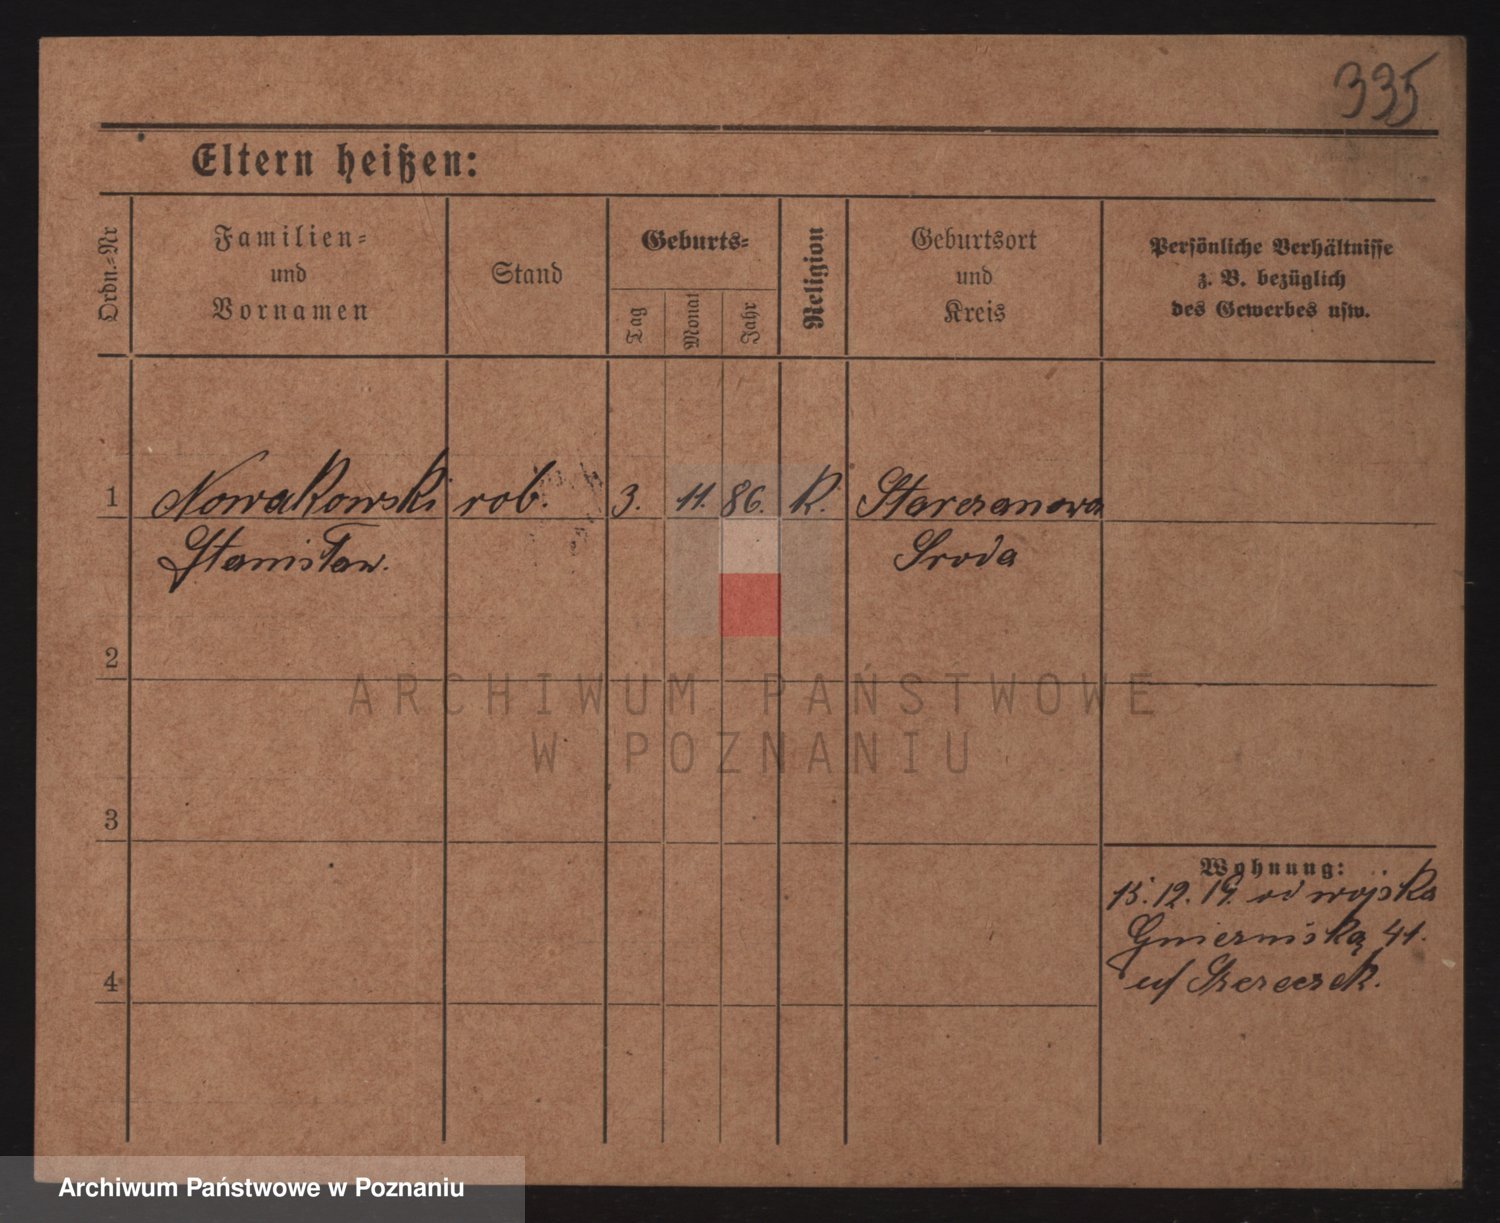 335
Eltern heißen:
Ordn.-Nr
Familien-
und
Vornamen
Stand
Geburts-
Tag
Monat
Jahr
Religion
Geburtsort
und
Kreis
Persönliche Verhältnisse
z. B. bezüglich
des Gewerbes usw.
1
Nowakowski rob. 3. 11. 86. K. Starczanowo
Stanisław. Sroda
2
ARCHIWUM PAŃSTWOWE
W POZNANIU
3
Wohnung:
15.12.19. od wojska
41.
4
Archiwum Państwowe w Poznaniu